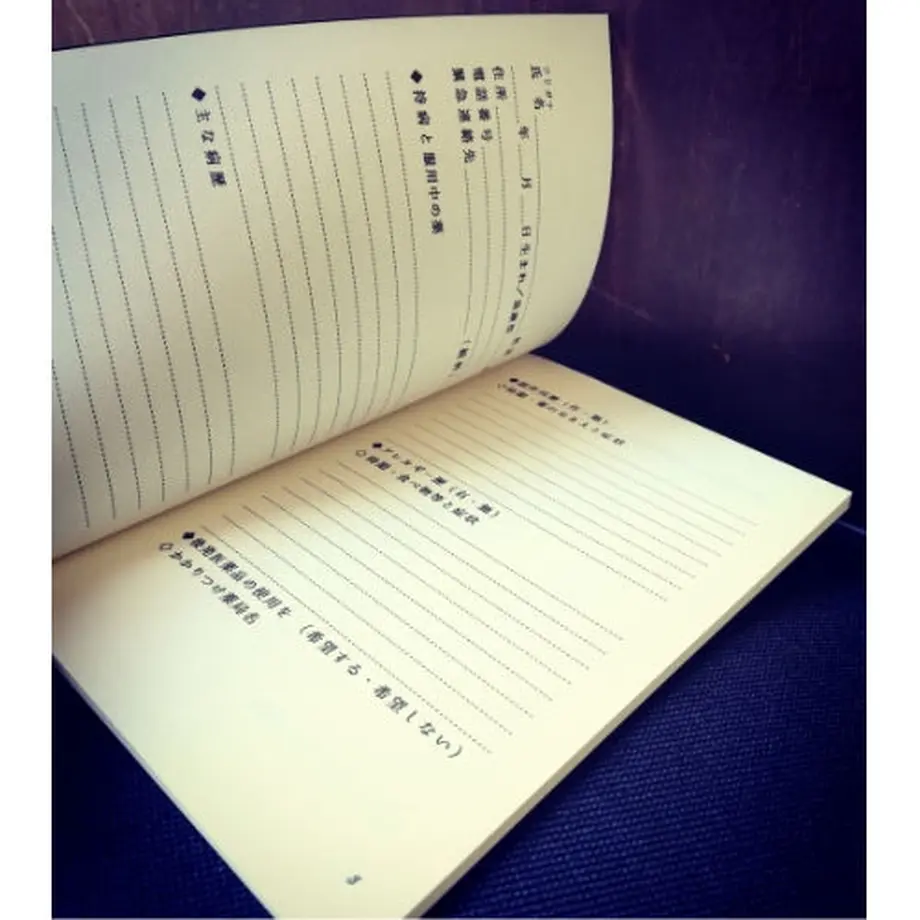 フリガナ
氏名
年 月 日生まれ/血液型 型
住所
電話番号
緊急連絡先 (続柄
◆持病と服用中の薬
◆主な病歴
◆副作用歴(有・無)
◆アレルギー歴(有・無)
・食べ物等と症状
◆後発医薬品の使用を(希望する・希望しない)
◇かかりつけ薬局名
3